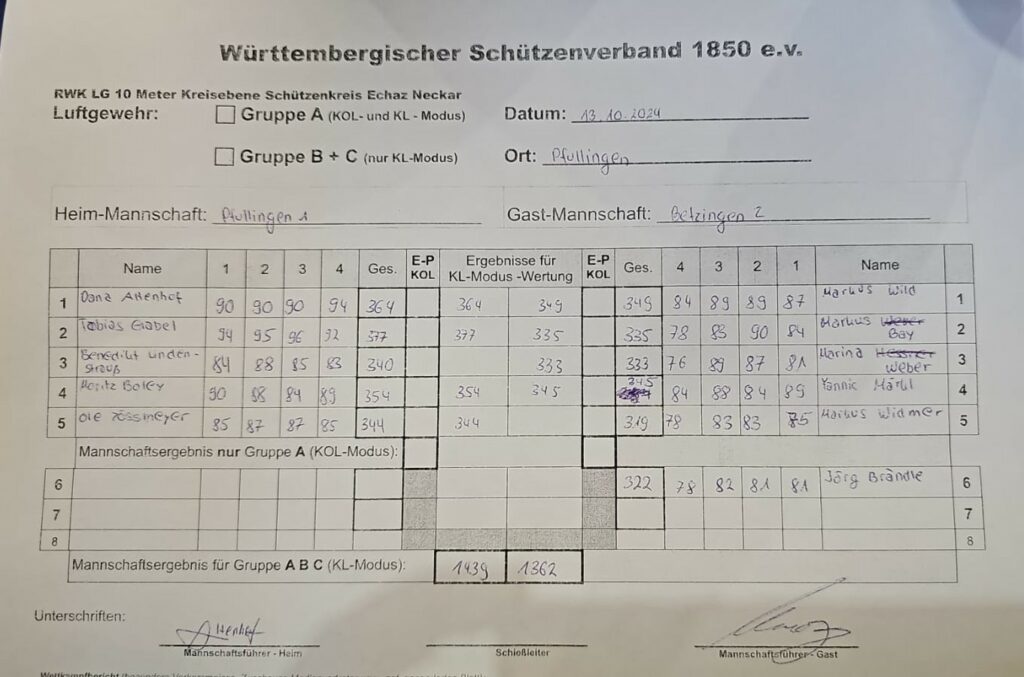 Württembergischer Schützenverband 1850 e.v.
RWK LG 10 Meter Kreisebene Schützenkreis Echaz Neckar
Luftgewehr: Gruppe A (KOL- und KL - Modus) Datum: 13.10.2024
Gruppe B + C (nur KL-Modus) Ort: Pfullingen
Heim-Mannschaft: Pfullingen 1 Gast-Mannschaft: Betzingen 2
Name 1 2 3 4 Ges. E-P KOL Ergebnisse für KL-Modus -Wertung E-P KOL Ges. 4 3 2 1 Name
1 Dana Attenhof 90 90 90 94 364 364 349 349 84 89 89 87 Markus Wild 1
2 Tobias 94 95 96 92 377 377 335 335 78 83 90 84 Markus Weber Bay 2
3 Benedikt Linden- strauß 84 88 85 83 340 333 333 76 89 87 81 Marina Weber 3
4 Moritz Boley 90 88 84 89 354 354 345 345 84 88 84 89 Yannic 4
5 Ole 85 87 87 85 344 344 319 78 83 83 75 Markus Widmer 5
Mannschaftsergebnis nur Gruppe A (KOL-Modus):
6 322 78 82 81 81 Jörg Brändle 6
7 7
8 8
Mannschaftsergebnis für Gruppe A B C (KL-Modus): 1439 1362
Unterschriften:
Attenhof
Mannschaftsführer - Heim Schießleiter Mannschaftsführer - Gast